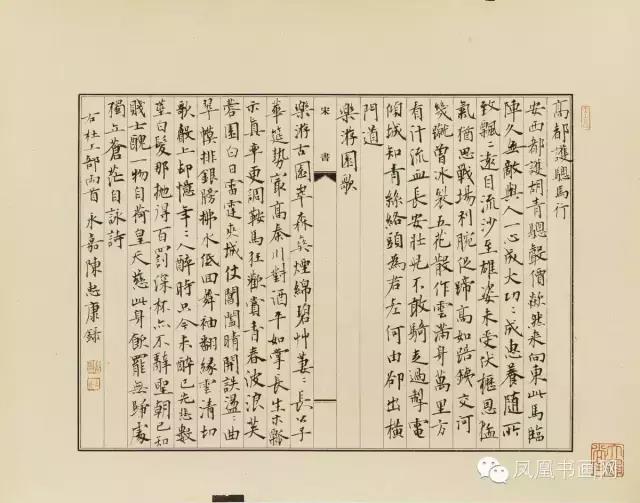 高都護驄馬行
安西都護胡青驄聲價欻然来向東此馬臨
陣久無敵與人一心成大功〻成惠養随所
致飄〻遠自流沙至雄姿未受伏櫪恩猛
氣猶思戰場利腕促蹄高如踣鐵交河
幾蹴曾冰裂五花散作雲滿身萬里方
看汗流血長安壮兒不敢騎走過掣電
傾城知青絲絡頭為君老何由卻出橫
門道
樂游園歌
宋書
樂游古園崒森爽煙綿碧艸萋〻長公子
華筵勢最高秦川對酒平如掌長生木瓢
示真率更調鞍馬狂歡賞青春波浪芙
蓉園白日雷霆夾城仗閶闔晴開詄蕩〻曲
翠幙排銀牓拂水低回舞袖翻緣雲清切
歌聲上却憶年〻人醉時只今未醉已先悲數
莖白髮那抛得百罰深杯亦不辭聖朝已知
賤士醜一物自荷皇天慈此身飲罷無歸處
獨立蒼茫自詠詩
右杜工部兩首永嘉陳忠康録
凤凰书画网